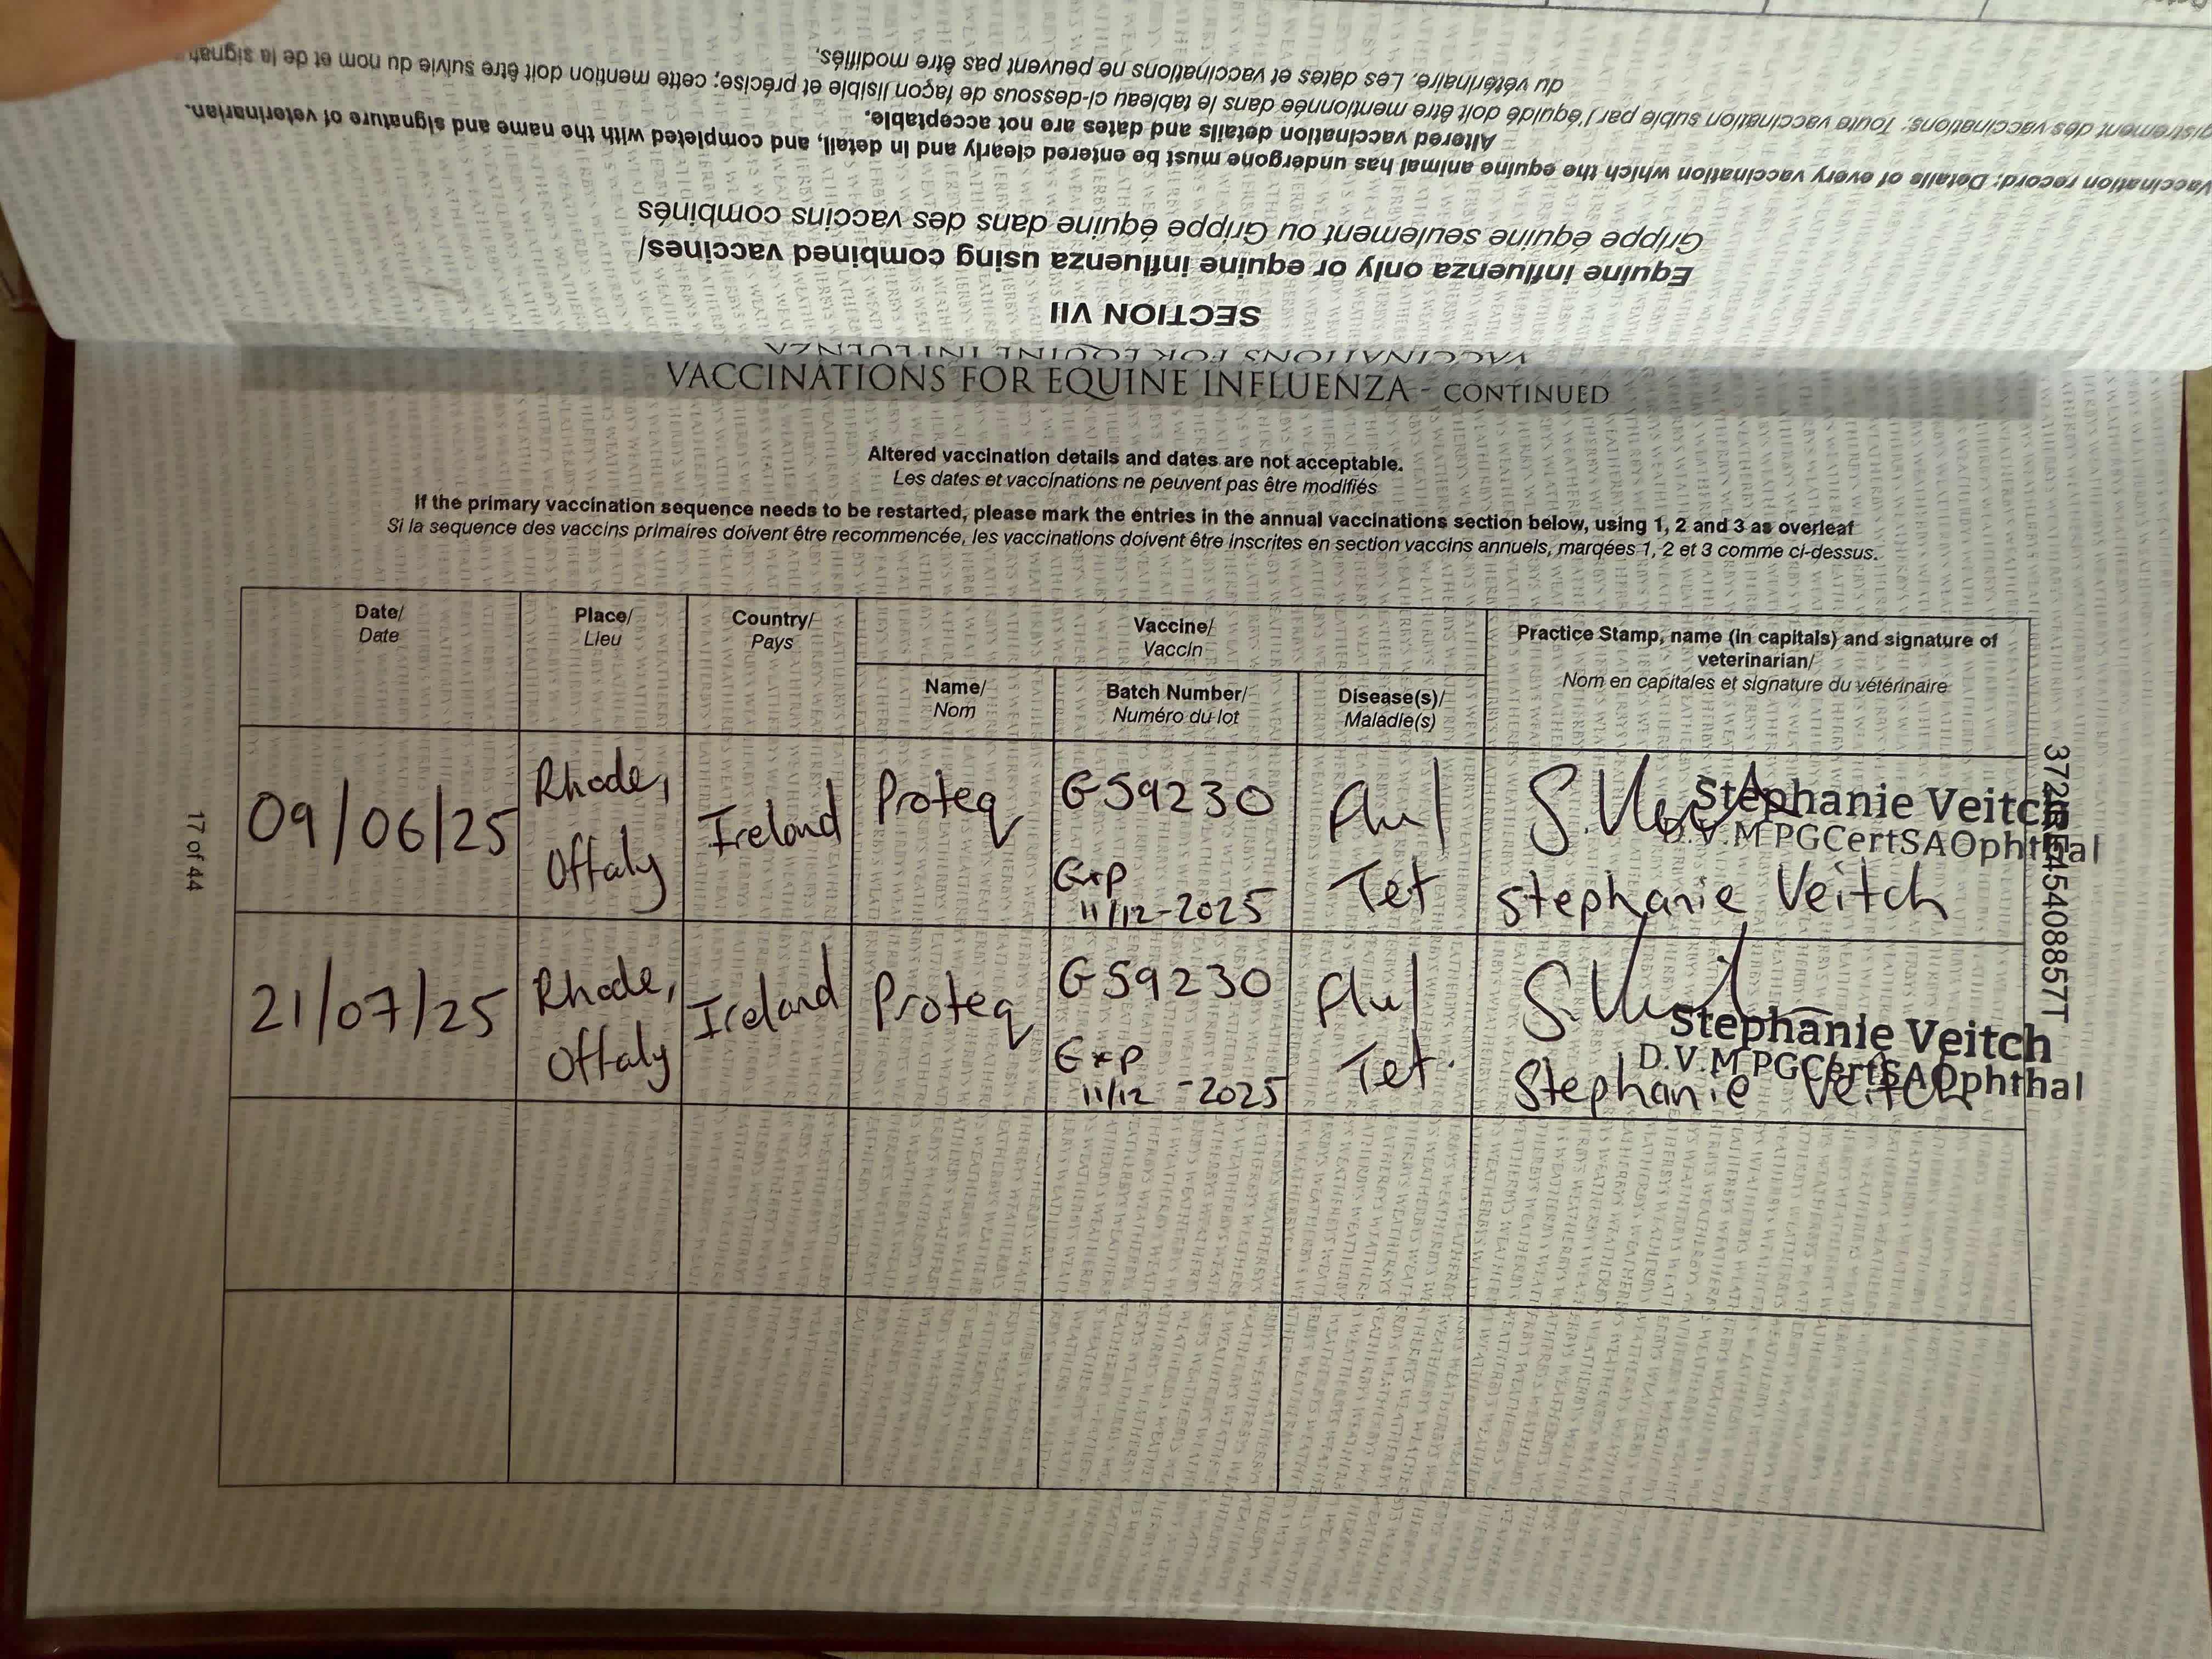 gistrement des vaccinations; Toute vaccination subie par l'équidé doit être mentionnée dans le tableau ci-dessous de façon lisible et précise; cette mention doit être suivie du nom et de la
du vétérinaire. Les dates et vaccinations ne peuvent pas être modifiés,
Vaccination record; Details of every vaccination which the equine animal has undergone must be entered clearly and in detail, and completed with the name and signature of veterinarian.
Altered vaccination details and dates are not acceptable.
Equine influenza only or equine influenza using combined vaccines/
Grippe équine seulement ou Grippe équine dans des vaccins combinés
SECTION VII
VACCINATIONS FOR EQUINE INFLUENZA
VACCINATIONS FOR EQUINE INFLUENZA - CONTINUED
Altered vaccination details and dates are not acceptable.
Les dates et vaccinations ne peuvent pas être modifiés
If the primary vaccination sequence needs to be restarted, please mark the entries in the annual vaccinations section below, using 1, 2 and 3 as overleaf
Si la sequence des vaccins primaires doivent être recommencée, les vaccinations doivent être inscrites en section vaccins annuels, marqées 1, 2 et 3 comme ci-dessus.
Date/
Date
Place/
Lieu
Country/
Pays
Vaccine/
Vaccin
Name/
Nom
Batch Number/
Numéro du lot
Disease(s)/
Maladie(s)
Practice Stamp, name (in capitals) and signature of
veterinarian/
Nom en capitales et signature du vétérinaire
09/06/25
Rhode,
Offaly
Ireland
Proteq
G59230
Exp
11/12-2025
Flu/
Tet
Stephanie Veitch
D.V.M PGCertSAOphthal
Stephanie Veitch
21/07/25
Rhode,
Offaly
Ireland
Proteq
G59230
Exp
11/12-2025
Flu/
Tet.
Stephanie Veitch
D.V.M PGCertSAOphthal
Stephanie Veitch
17 of 44